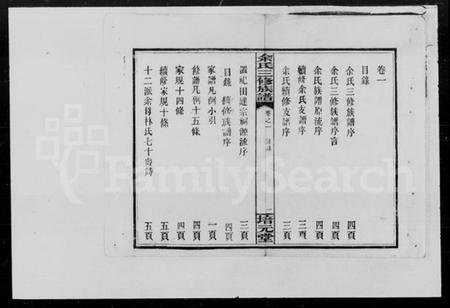 卷一
目錄
余氏三修族譜序 四頁
余氏三修族譜序言 四頁
余氏族譜原流序 四頁
續修余氏支譜序 三頁
余氏續修支譜序 三頁
余氏三修族譜 卷之一 目錄 一 培元堂
置祀田建宗祠源流序 三頁
目錄 續修族譜序 四頁
家譜凡例小引 一頁
修譜凡例十五條 四頁
家規十四條 四頁
續修家規十條 五頁
十二派余母林氏七十壽詩 五頁
FamilySearch